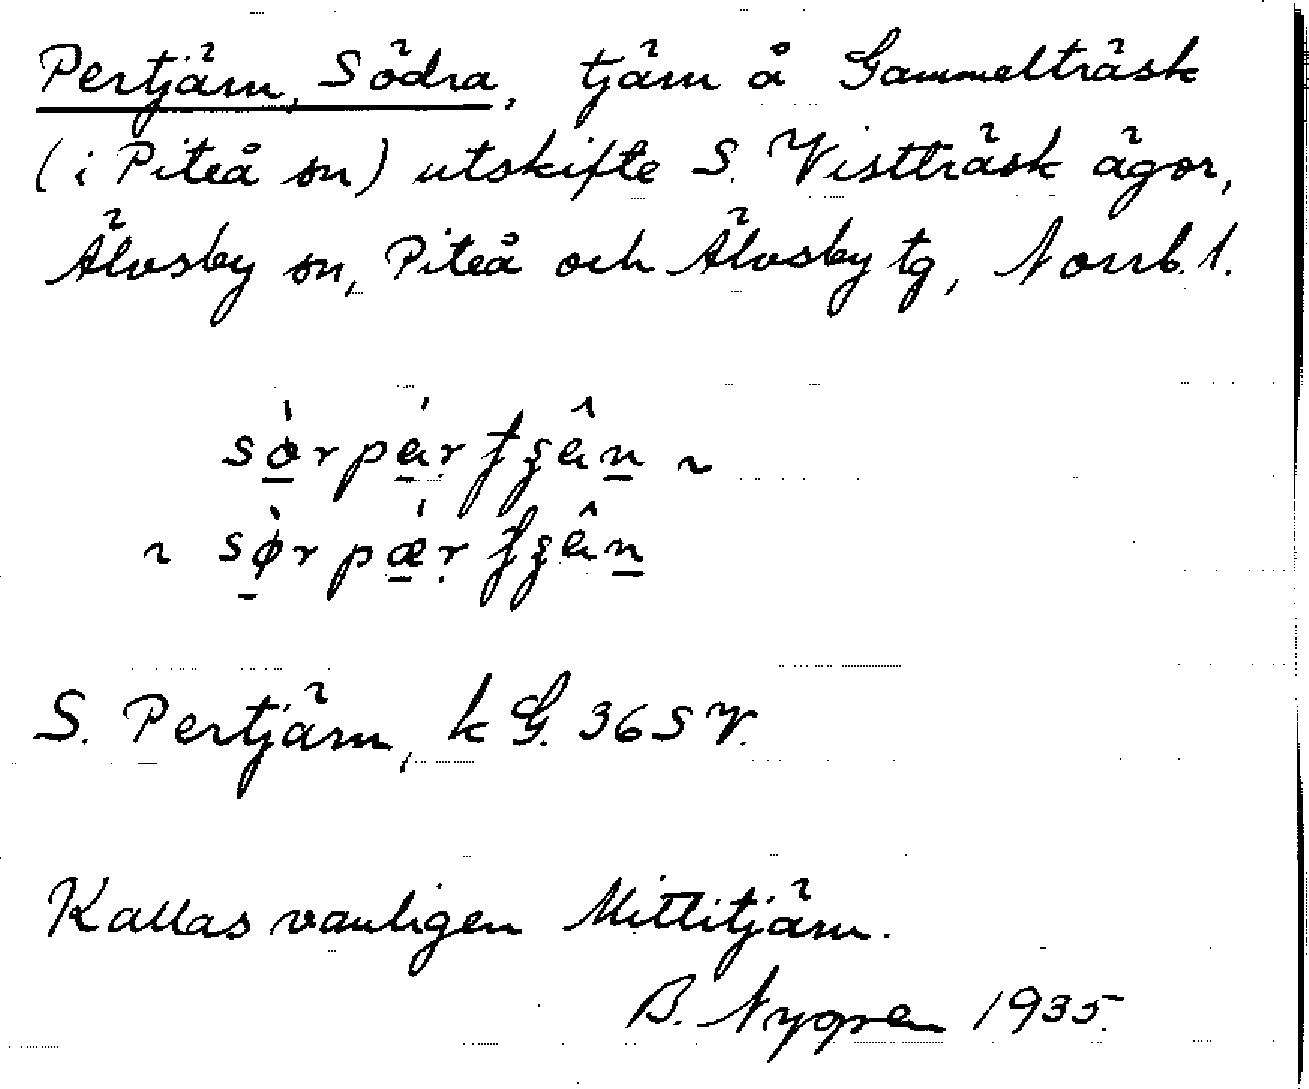 Pertjärn, Södra, tjärn å Gammelträsk
(i Piteå sn) utskifte S. Vistträsk ägor,
Älvsby sn, Piteå och Älvsby tg, Norrb. l.
S. Pertjärn, k G. 36 S V.
Kallas vanligen Mittitjärn.
B. Nygren 1935.